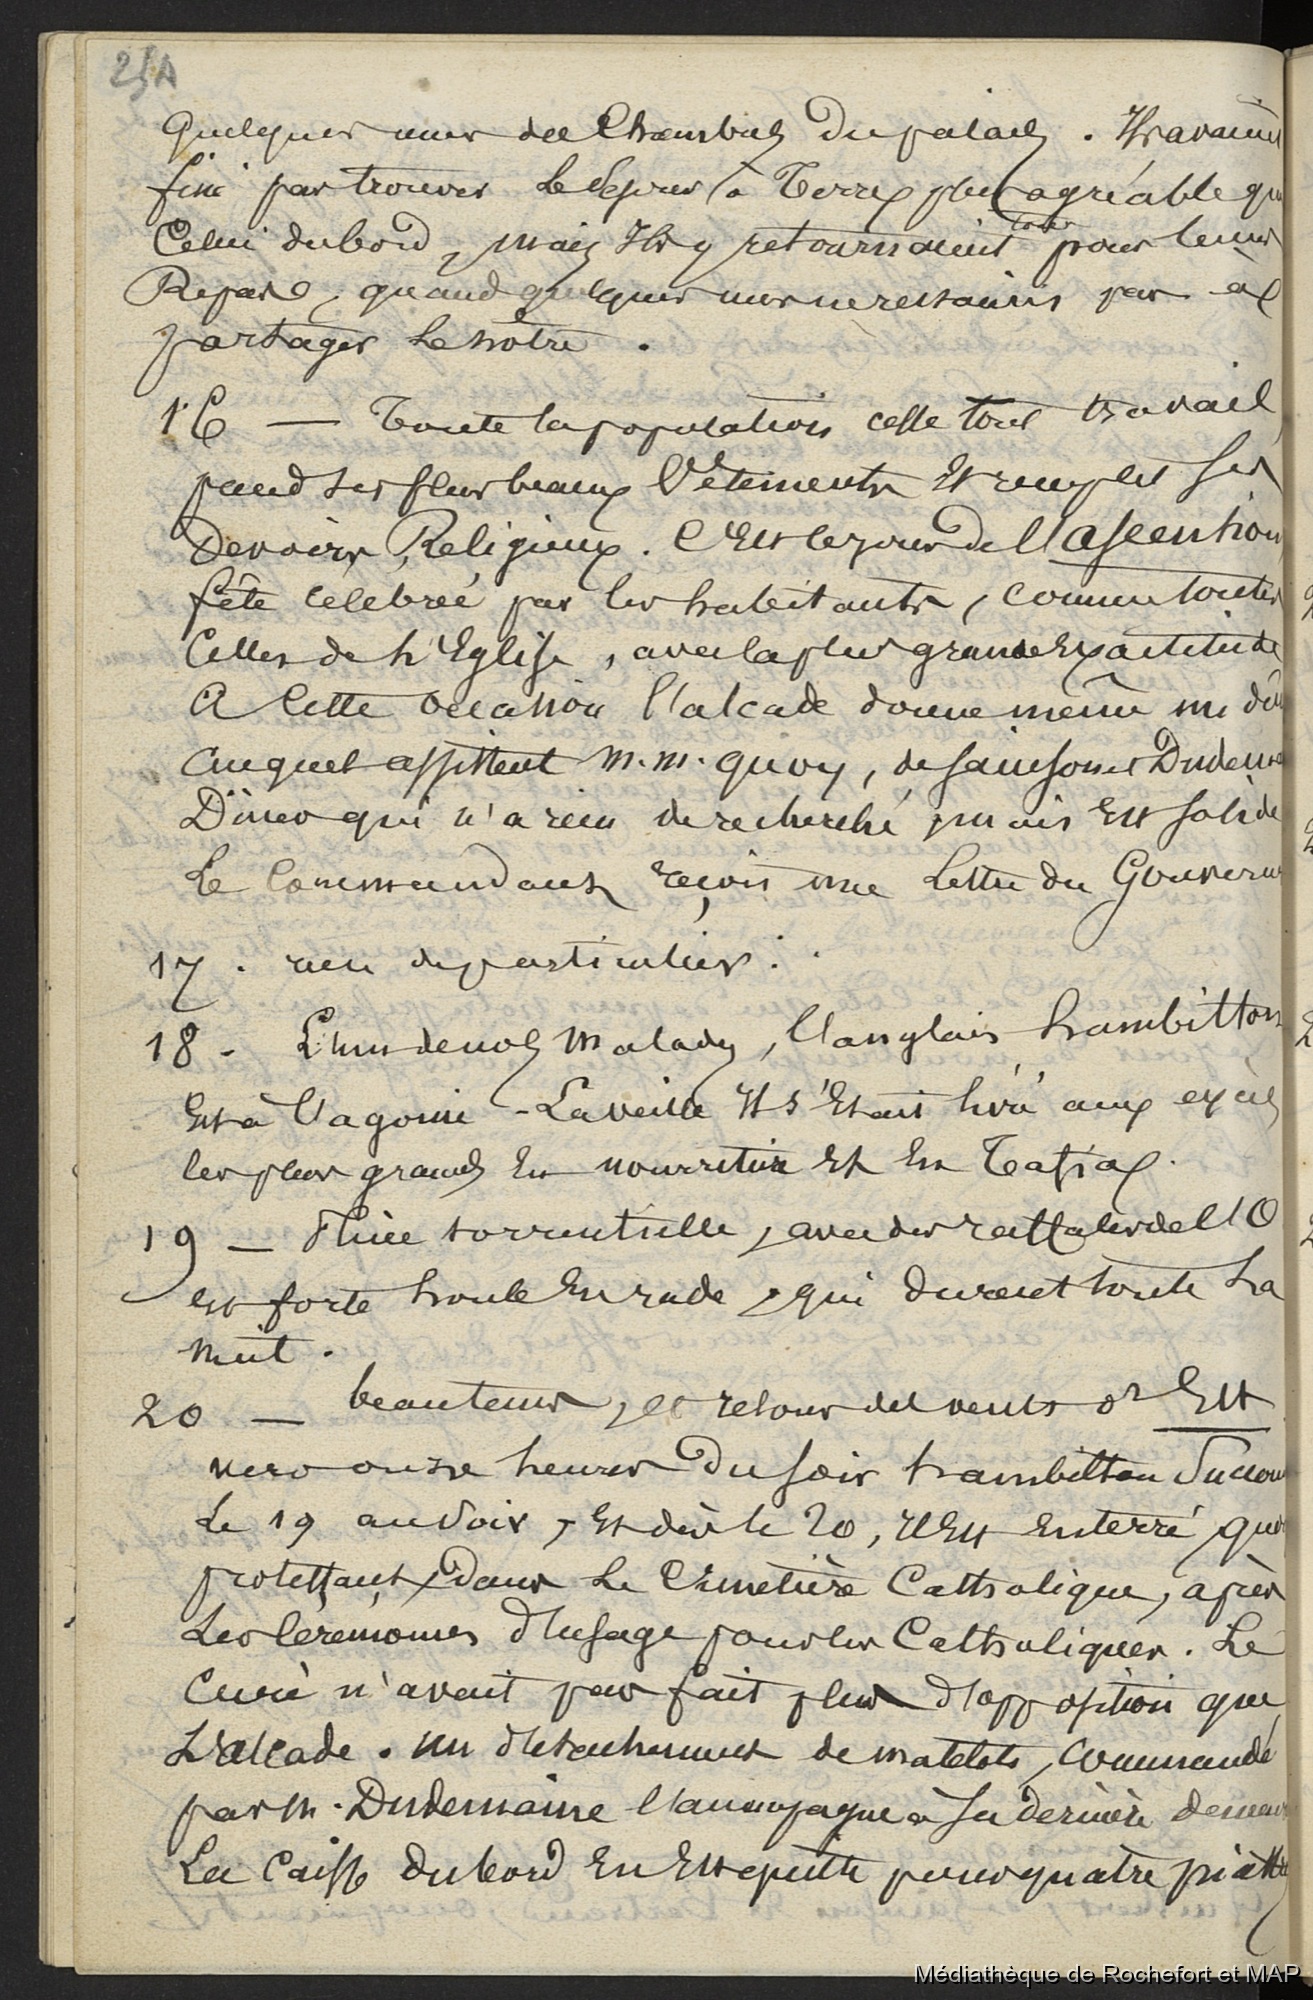 254
quelques unes des Chambres du palais. Ils avaient
fini par trouver le séjour à Terre plus agréable que
Celui du bord, mais Ils y retournaient tous pour leurs
Repas, quand quelques uns ne restaient pas à
partager le nôtre.
16 — Toute la population cesse tout travail,
prend ses plus beaux Vêtements Et remplit ses
Devoirs Religieux. C'Est le jour de l'ascention
fête célébrée par les habitants, comme toutes
Celles de L'Eglise, avec la plus grande Exactitude
A cette occasion l'alcade donne même un dîner
auquel assistent M.M. quoy, de sainson et Dudemaine
Dîner qui n'a rien de recherché, mais Est solide
Le Commandant reçoit une Lettre du Gouverneur
17. rien de particulier.
18 - L'un de nos Malades, l'anglais hambilton
Est à l'agonie - La veille Il s'Etait livré aux excès
les plus grands En nourriture Et En Tafia.
19 — Pluie torrentielle, avec des raffales de l'O
Et forte houle En rade, qui durent toute La
nuit.
20 — beau temps, et retour des vents d'Est
vers onze heures Du soir hambilton Succombe
Le 19 au soir, Et dès le 20, il Est Enterré, quoique
protestant, dans Le Cimetière Catholique, après
Les Cérémonies d'usage pour les Catholiques. Le
Curé n'avait pas fait plus d'opposition que
L'alcade. un détachement de matelots, commandé
par M. Dudemaine l'accompagne à sa dernière demeure
La Caisse du bord En Est quitte pour quatre piastres
Médiathèque de Rochefort et MAP